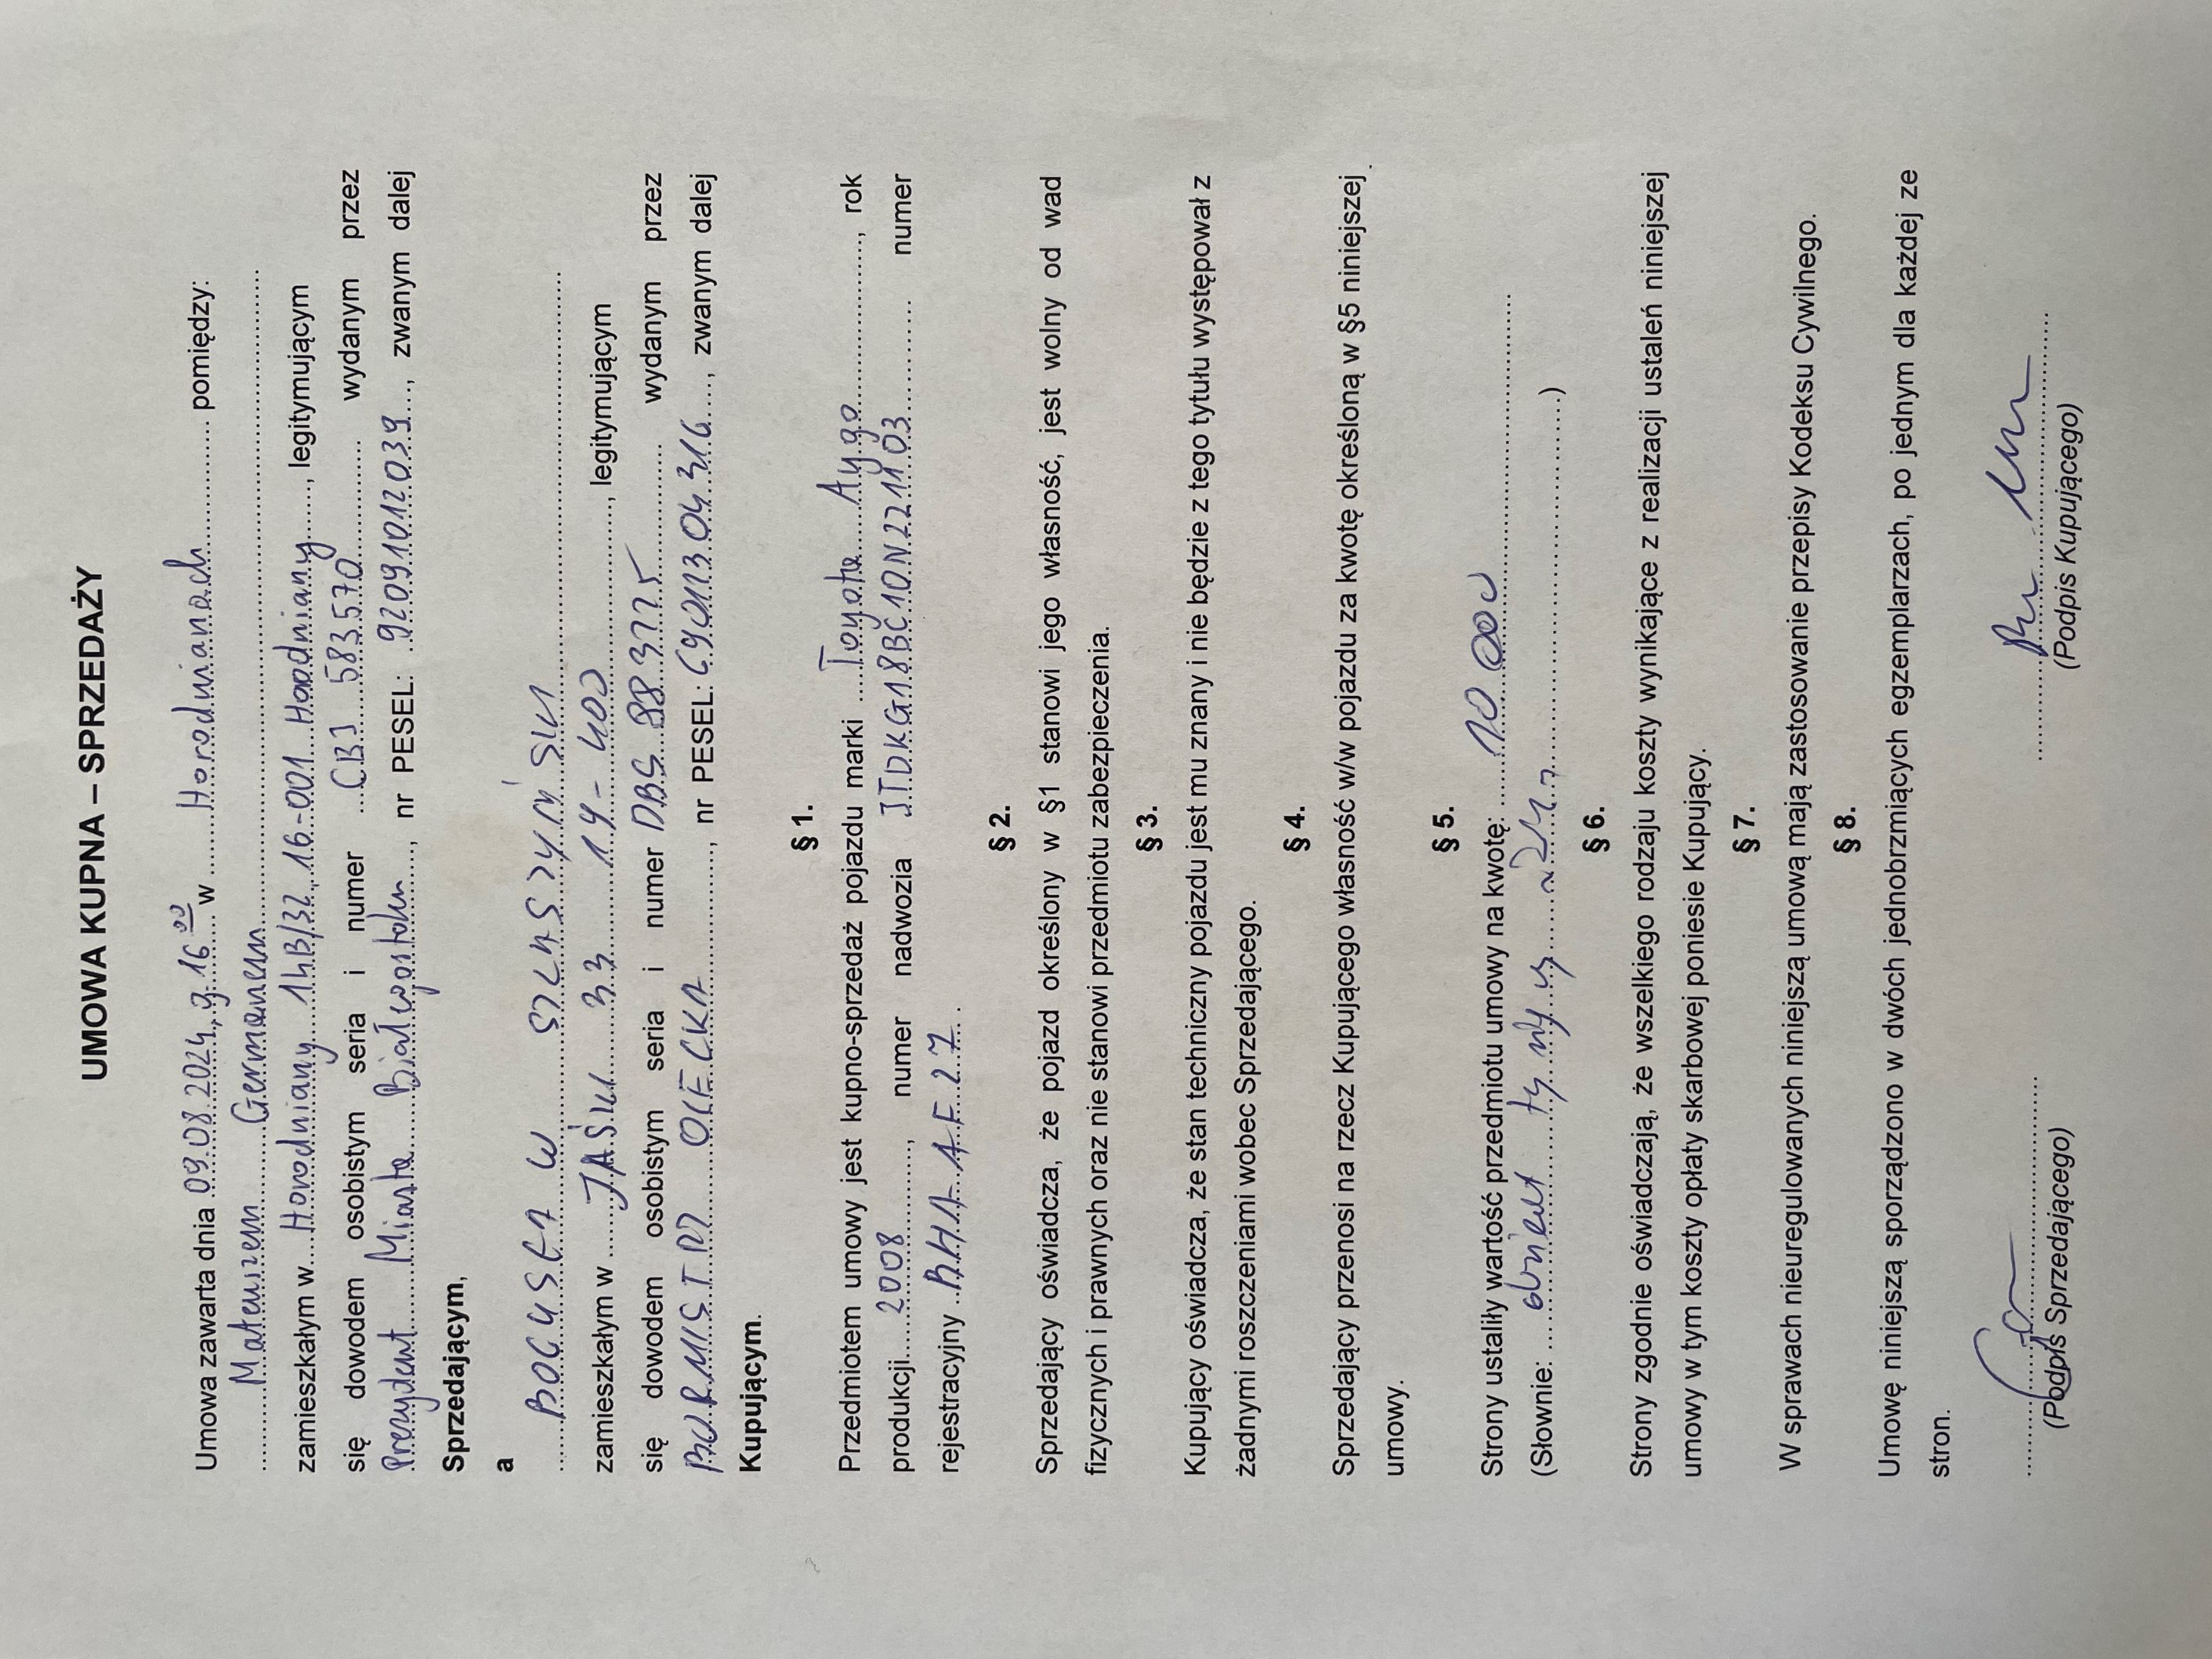 UMOWA KUPNA – SPRZEDAŻY
Umowa zawarta dnia 09.08.2024, g. 16⁰⁰ w Horodnianach pomiędzy:
Mateuszem Germanem
zamieszkałym w Horodniany 14B/32, 16-001 Hoodniany, legitymującym
się dowodem osobistym seria i numer CBJ 583570 wydanym przez
Prezydent Miasta Białegostoku, nr PESEL: 92091012039, zwanym dalej
Sprzedającym,
a
BOGUSŁAW SZLASZYŃSKI
zamieszkałym w JAŚKI 33 19-400, legitymującym
się dowodem osobistym seria i numer DBS 883775 wydanym przez
BURMISTRZ OLECKA, nr PESEL: 69011304316, zwanym dalej
Kupującym.
§ 1.
Przedmiotem umowy jest kupno-sprzedaż pojazdu marki Toyota Aygo, rok
produkcji 2008, numer nadwozia JTDKG18BC10N221103 numer
rejestracyjny BHA AF27.
§ 2.
Sprzedający oświadcza, że pojazd określony w §1 stanowi jego własność, jest wolny od wad
fizycznych i prawnych oraz nie stanowi przedmiotu zabezpieczenia.
§ 3.
Kupujący oświadcza, że stan techniczny pojazdu jest mu znany i nie będzie z tego tytułu występował z
żadnymi roszczeniami wobec Sprzedającego.
§ 4.
Sprzedający przenosi na rzecz Kupującego własność w/w pojazdu za kwotę określoną w §5 niniejszej
umowy.
§ 5.
Strony ustaliły wartość przedmiotu umowy na kwotę: 10 000
(Słownie: dziesięć tysięcy )
§ 6.
Strony zgodnie oświadczają, że wszelkiego rodzaju koszty wynikające z realizacji ustaleń niniejszej
umowy w tym koszty opłaty skarbowej poniesie Kupujący.
§ 7.
W sprawach nieuregulowanych niniejszą umową mają zastosowanie przepisy Kodeksu Cywilnego.
§ 8.
Umowę niniejszą sporządzono w dwóch jednobrzmiących egzemplarzach, po jednym dla każdej ze
stron.
(Podpis Sprzedającego) (Podpis Kupującego)